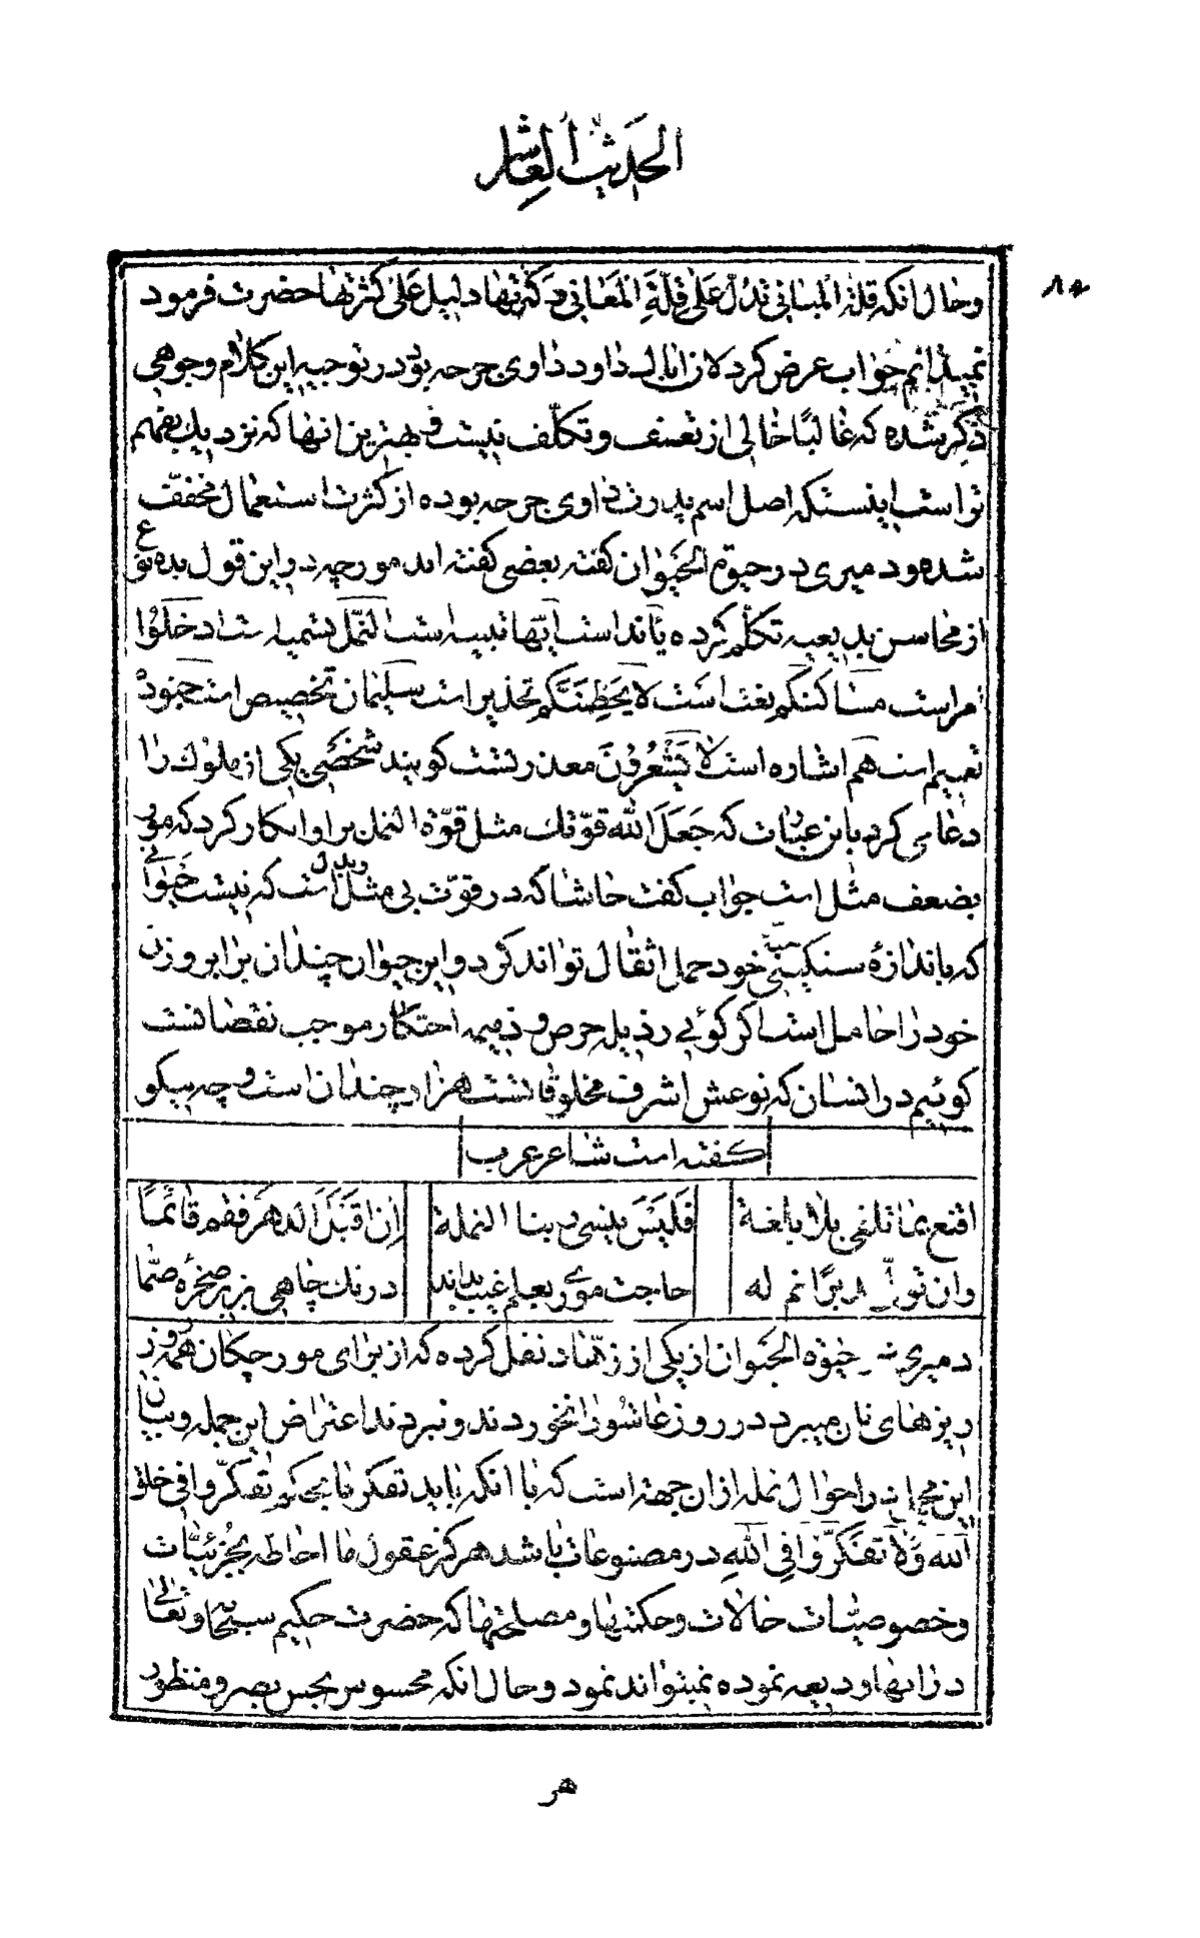 الحدیث العاشر
وحال انکه قلة المبانی تدل علی قلة المعانی وکثرتها دلیل علی کثرتها حضرت فرمود
نمیدانم جواب عرض کرد لان اباك داود داوی جرحه بود در توجیه این کلام وجوهی
ذکر شده که غالبًا خالی از تعسف و تکلّف نیست و بهترین انها که نزدیك بفهم
تو است اینستکه اصل اسم پدرت داوی جرحه بوده از کثرت استعمال مخفف
شده ودمیری در حیوة الحیوان گفته بعضی گفته اند مورچه در این قول بده نوع
از محاسن بدیعیه تکلّم کرده یا نداست ایّها تنبیه است النّمل تسمیه است ادخلوا
امر است مساکنکم نعت است لا یحطمنّکم تحذیر است سلیمان تخصیص است جنوده
تعمیم است هم اشاره است لا یشعرون معذرتست گویند شخصی یکی از ملوك را
دعا می کرد باین عبارت که جعل الله قوّتك مثل قوّة النمل براو انکار کرد که مور
بضعف مثل است جواب گفت حاشا که در قوّت بی مثل وبدل است که نیست حیوانی
که باندازهٔ سنگینی خود حمل اثقال تواند کرد و این حیوان چندان برابر وزن
خود را حامل است اگر گوئی رذیله حرص و ذمیمه احتکار موجب نقصانست
گوئیم در انسان که نوعش اشرف مخلوقاتست هزار چندان است و چه نیکو
گفته است شاعر عرب
اقنع بما تلقی بلا بلغة فلیس ینسی ربنا النملة ان اقبل الدهر فقم قائمًا
وان تولّی مدبرًا نم له حاجت موری بعلم غیب بداند در بن چاهی بزیر صخرهٔ صمّا
دمیری در حیوة الحیوان از یکی از زهّاد نقل کرده که از برای مورچکان همه روز
ریزهای نان میبرد در روز عاشورا نخوردند و نبردند اعتراض این جمله وبیان
این مجملات در احوال نمله از ان جهة است که با انکه باید تفکر ما بحکم تفکّروا فی خلق
الله ولا تفکّروا فی الله در مصنوعات باشد هرگز عقول ما احاطه بجزئیّات
وخصوصیّات حالات وحکمتها و مصلحتها که حضرت حکیم سبحانه و تعالی
در انها ودیعه نموده نمیتواند نمود وحال انکه محسوس بحس بصر و منظور
هر